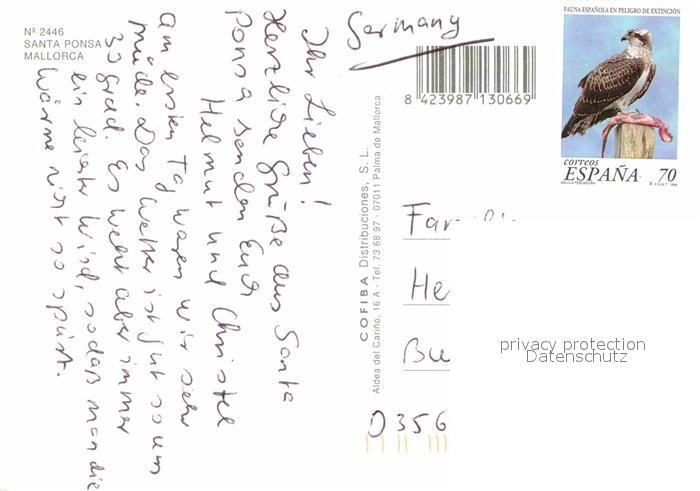 Nº 2446
SANTA PONSA
MALLORCA
Ihr Lieben!
Herzliche Grüße aus Santa
Ponsa senden Euch
Helmut und Christel
Am ersten Tag waren wir sehr
müde. Das Wetter ist gut so um
30 Grad. Es weht aber immer
ein leichter Wind, sodaß man die
Wärme nicht so spürt.
COFIBA Distribuciones, S. L.
Aldea del Cariño, 16 A - Tel. 73 68 97 - 07011 Palma de Mallorca
Germany
8 423987 130669
FAUNA ESPAÑOLA EN PELIGRO DE EXTINCIÓN
correos
ESPAÑA 70
AGUILA PESCADORA
Fam
He
Bu
D 356
privacy protection
Datenschutz